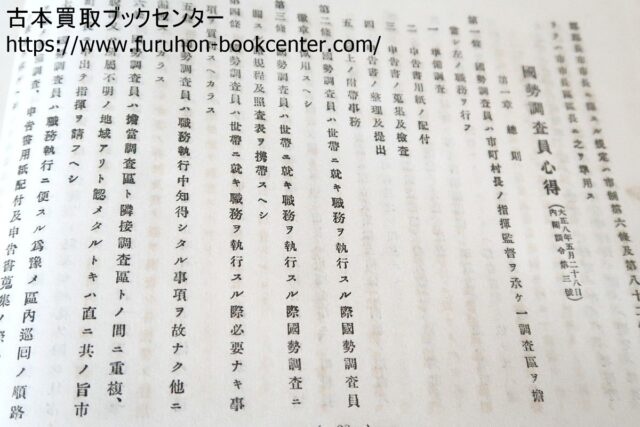 古本買取ブックセンター
https://www.furuhon-bookcenter.com/
國勢調査員心得
(大正八年五月二十八日
內閣訓令第三號)
第一章 總則
第一條 國勢調査員ハ市町村長ノ指揮監督ヲ承ケ一調査區ヲ擔
當シ左ノ職務ヲ行フ
一 準備調査
二 申告書用紙ノ配付
三 申告書ノ蒐集及檢査
四 申告書ノ整理及提出
五 以上ノ附帶事務
第二條 國勢調査員ハ世帶ニ就キ職務ヲ執行スル際國勢調査員
徽章
用スヘシ
第三條 國勢調査員ハ世帶ニ就キ職務ヲ執行スル際國勢調査ニ
關スル
規程及照査表ヲ携帶スヘシ
第四條 國勢調査員ハ世帶ニ就キ職務ヲ執行スル際必要ナキ事
項
質
スヘカラス
勢調査員ハ職務執行中知得シタル事項ヲ故ナク他ニ
カラス
調査員ハ擔當調査區ト隣接調査區トノ間ニ重複、
屬不明ノ地域アリト認メタルトキハ直ニ其ノ旨市
出テ指揮ヲ請フヘシ
調査員ハ職務執行ニ便スル爲豫メ區內巡回ノ順路
調査、申告書用紙配付及申告書蒐集ノ際